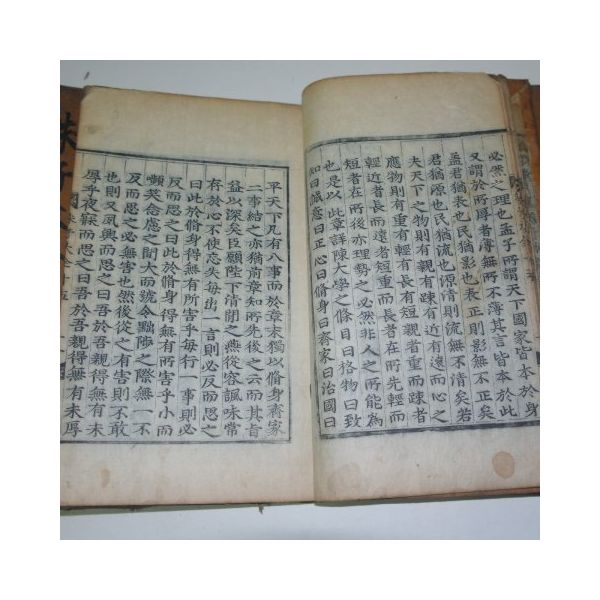 必然之理也孟子所謂天下國家皆本於身
又謂於所厚者薄無所不薄其言皆本於此
蓋君猶表也民猶影也表正則影無不正矣
君猶源也民猶流也源清則流無不清矣若
夫天下之物則有親有踈有近有遠而心之
應物則有重有輕有長有短親者重而踈者
輕近者長而遠者短重而長者在所先輕而
短者在所後亦理勢之必然非人之所能爲
也是以此章詳陳大學之條目曰格物曰致
知曰誠意曰正心曰脩身曰齊家曰治國曰
平天下凡有八事而於章末獨以脩身齊家
二事結之亦猶前章知所先後之云而其旨
益以深矣臣願陛下清閒之燕從容諷味常
存於心不使忘失每出一言則必反而思之
曰此於脩身得無有所害乎每行一事則必
反而思之曰此於脩身得無有所害乎小而
嚬笑念慮之間大而號令黜陟之際無一不
反而思之必無害也然後從之有害則不敢
也則又夙興而思之曰吾於吾親得無有未
厚乎夜寐而思之曰吾於吾親得無有未厚
朱子大